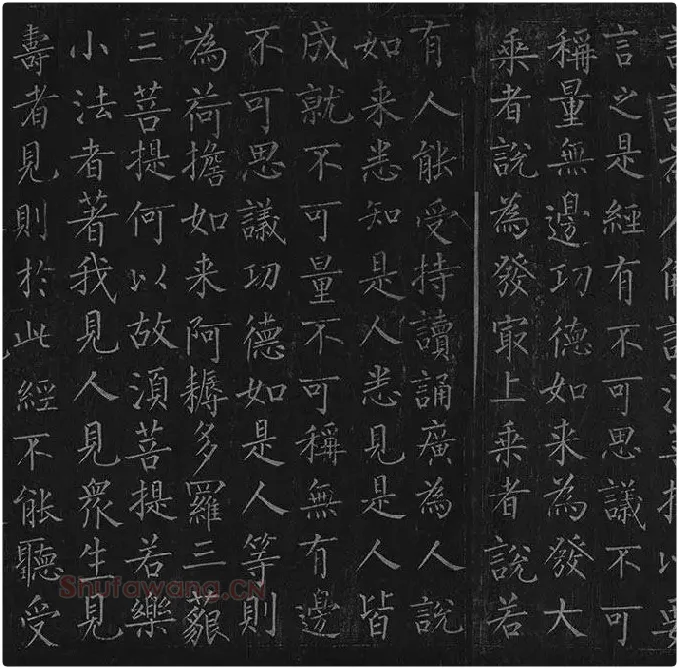 言之是經有不可思議不可
稱量無邊功德如来為發大
乘者說為發冣上乘者說若
有人能受持讀誦廣為人說
如来悉知是人悉見是人皆
成就不可量不可稱無有邊
不可思議功德如是人等則
為荷擔如来阿耨多羅三藐
三菩提何以故湏菩提若樂
小法者著我見人見衆生見
壽者見則於此經不能聽受
Shufawang.CN